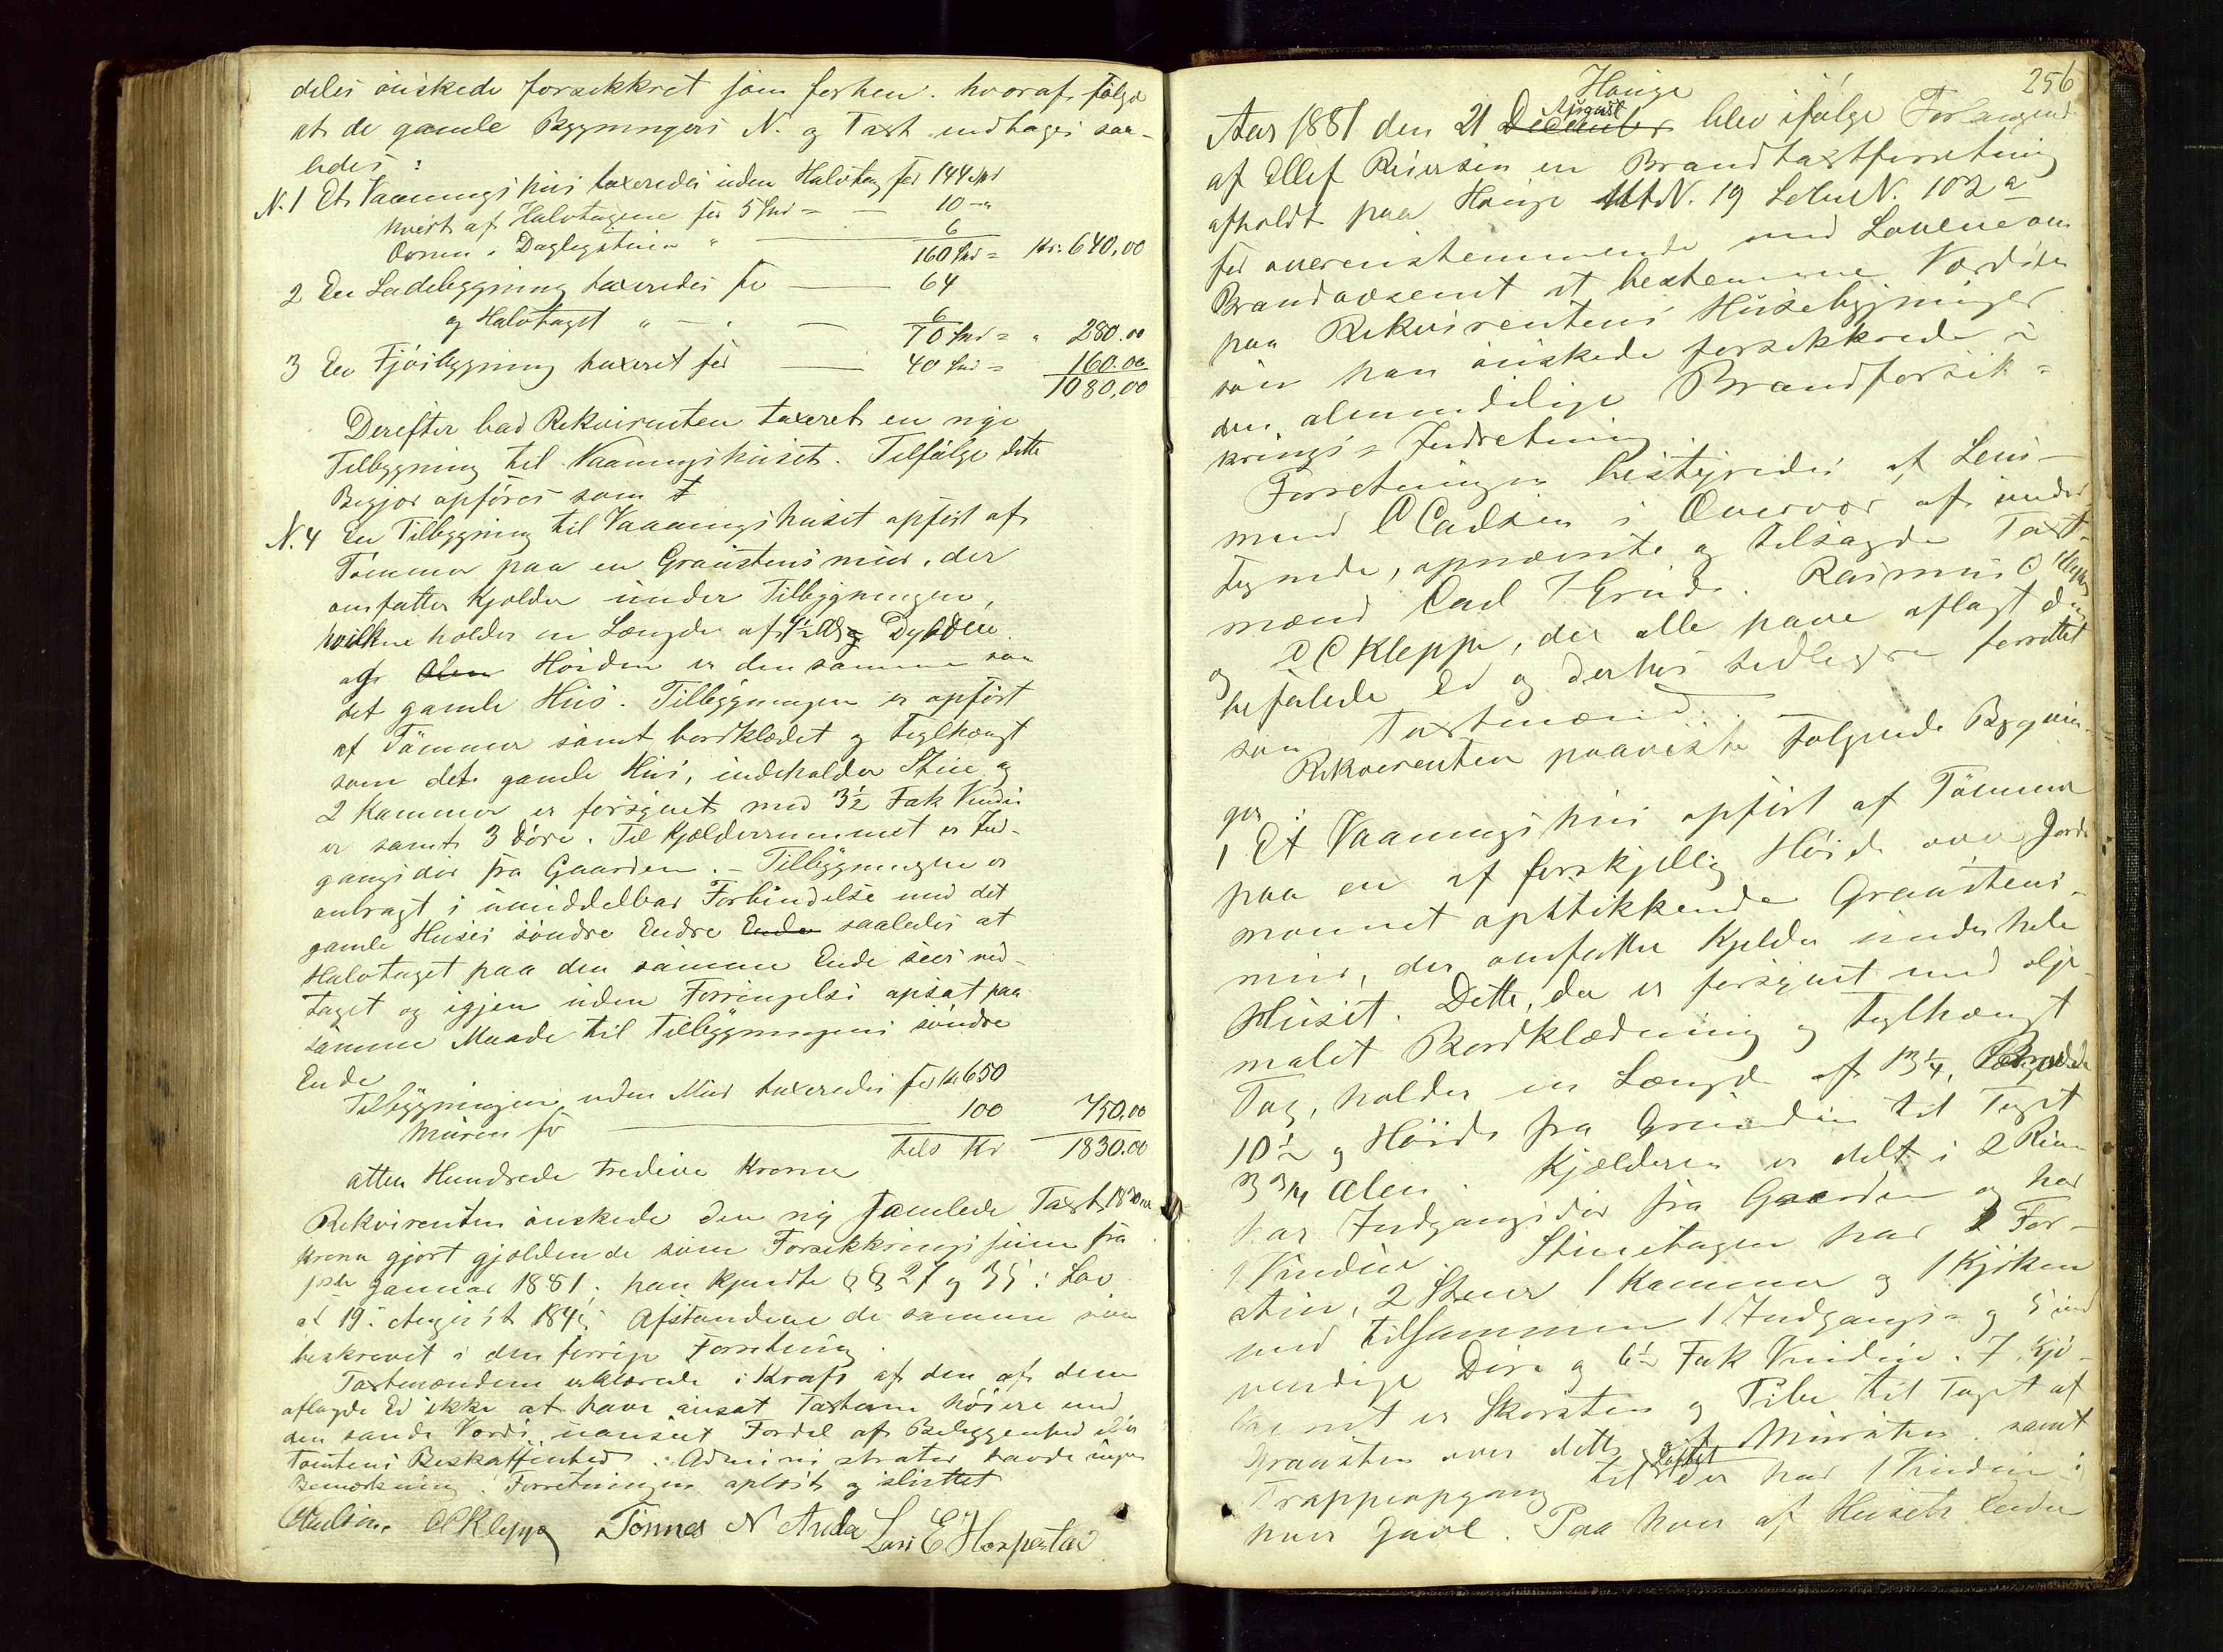 deles ønskede forsekkret som forhen. hvoraf følge
at de gamle Bygningers N. og Taxt indtages saa-
ledes:
N. 1 Et Vaaningshus taxeredes uden Halvtag for 144 Spd
hvert af Halvtagene for 5 Spd = — 10 -"
Ovnen i Daglegstuen " — 6
160 Spd = Kr: 640,00
2 En Ladebygning taxeredes for — 64
og Halvtaget " — " — 6
70 Spd = " 280.00
3 En Fjøsbygning taxeret for — 40 Spd = 160.00
1080,00
Derefter bad Rekvirenten taxeret en nye
Tilbygning til Vaaningshuset. Tilfølge dette
Begjær opføres som
N. 4 En Tilbygning til Vaaningshuset opført af
Tømmer paa en Graastensmur, der
omfatter Kjelder under Tilbygningen,
hvilken holder en Længde af 4½ Al og Dybden
af Alen Høiden er den samme som
det gamle Hus. Tilbygningen er opført
af Tømmer samt bordklædet og Teglhængt
som det gamle Hus, indeholder Stue og
2 Kammer er forsynet med 3½ Fak Vindu
er samt 3 Døre. Til Kjælderrummet er Ind-
gangsdør fra Gaarden. - Tilbygningen er
anbragt i umiddelbar Forbindelse med det
gamle Huses søndre Endre Ende saaledes at
Halvtaget paa den samme Ende sees ned-
taget og igjen uden Forringelse opsat paa
samme Maade til Tilbygningens søndre
Ende
Tilbygningen uden Mur taxeredes for Kr 650
Muren for — 100 750,00
tils Kr 1830.00
atten Hundrede tredive Kroner
Rekvirenten ønskede den ny samlede Taxt 1830
Kroner gjort gjældende som Forsekkringssum fra
1ste Januar 1881; han kjendte §§ 27 og 35 i Lov
af 19. August 1845. Afstandene de samme som
beskrevet i den forrige Forretning.
Taxtmændene erklærede i Kraft af den af dem
aflagde Ed ikke at have ansat Taxterne høiere end
den sande Værdi, uanseet Fordel af Beliggenhed eller
Tomtens Beskaffenhed. Administrator havde ingen
Bemærkning. Forretningen oplæst og sluttet
CCadsen. OCKleppe Tønnes N Anda Lars E Horpestad
256
Hauge
Aar 1881 den 21 December August blev ifølge Forlangende
af Ellef Reiersen en Brandtaxtforretning
afholdt paa Hauge Mt N. 19 Løbe N. 102 a
for overenstemmende med Lovene om
Brandvæsenet at bestemme Værdien
paa Rekvirentens Husebygninger
som han ønskede forsekkrede i
den almindelige Brandforsik-
krings-Indretning.
Forretningen bestyredes af Lens-
mand CCadsen i Overvær af under
tegnede, opnævnte og tilsagde Taxt-
mænd Carl Grude. Rasmus O Kleppe
og O C Kleppe, der alle have aflagt den
befalede Ed og derhos tidligere forrettet
som Taxtmænd.
Rekvirenten paaviste følgende Bygnin-
ger:
1 Et Vaaningshus opført af Tømmer
paa en af forskjellig Høide over Jord
monnet opstikkende Graastens-
mur, der omfatter Kjelder under hele
Huset. Dette, der er forsynet med olje
malet Bordklædning og teglhængt
Tag, holder en Længde af 13¼, Bredde
10½ og Høide fra Grunden til Taget
3 3/4 Alen. Kjælderen er delt i 2 Rum
har Indgangsdør fra Gaarden og har
1 Vindue. Stueetagen har 1 For-
stue, 2 Stuer 1 Kammer og 1 Kjøken
med tilsammen 1 Indgangs- og 5 ind
vendige Døre og 6½ Fak Vinduer. I Kjø-
kenet er Skorsten og Pibe til Taget af
Graasten over dette af Mursten. samt
Trappeopgang til Loftet der har 1 Vindue i
hver Gavl. Paa hver af Husets Ender